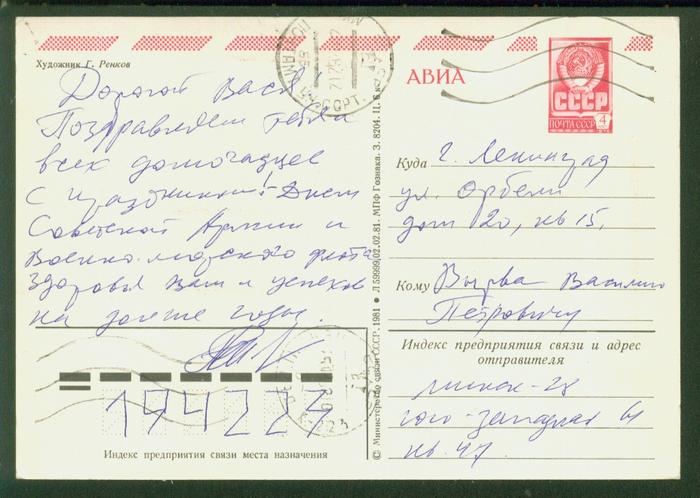 Художник Г. Ренков
АВИА
СССР
ПОЧТА СССР
4
Дорогой Вася!
Поздравляем тебя
всех домочадцев
с праздником! Днем
Советской Армии и
Военно-морского флота
Здоровья Вам и успехов
на долгие годы.
Куда г. Ленинград
ул. Орбели
дом 20, кв 15.
Кому Вырва Василию
Петровичу
Индекс предприятия связи и адрес
отправителя
Минск-28
юго-западная 61
кв. 47.
194223
Индекс предприятия связи места назначения
© Министерство связи СССР. 1981 • Л 59999. 02.02.81. МПФ Гознака. З. 8204. Ц. 6 к.